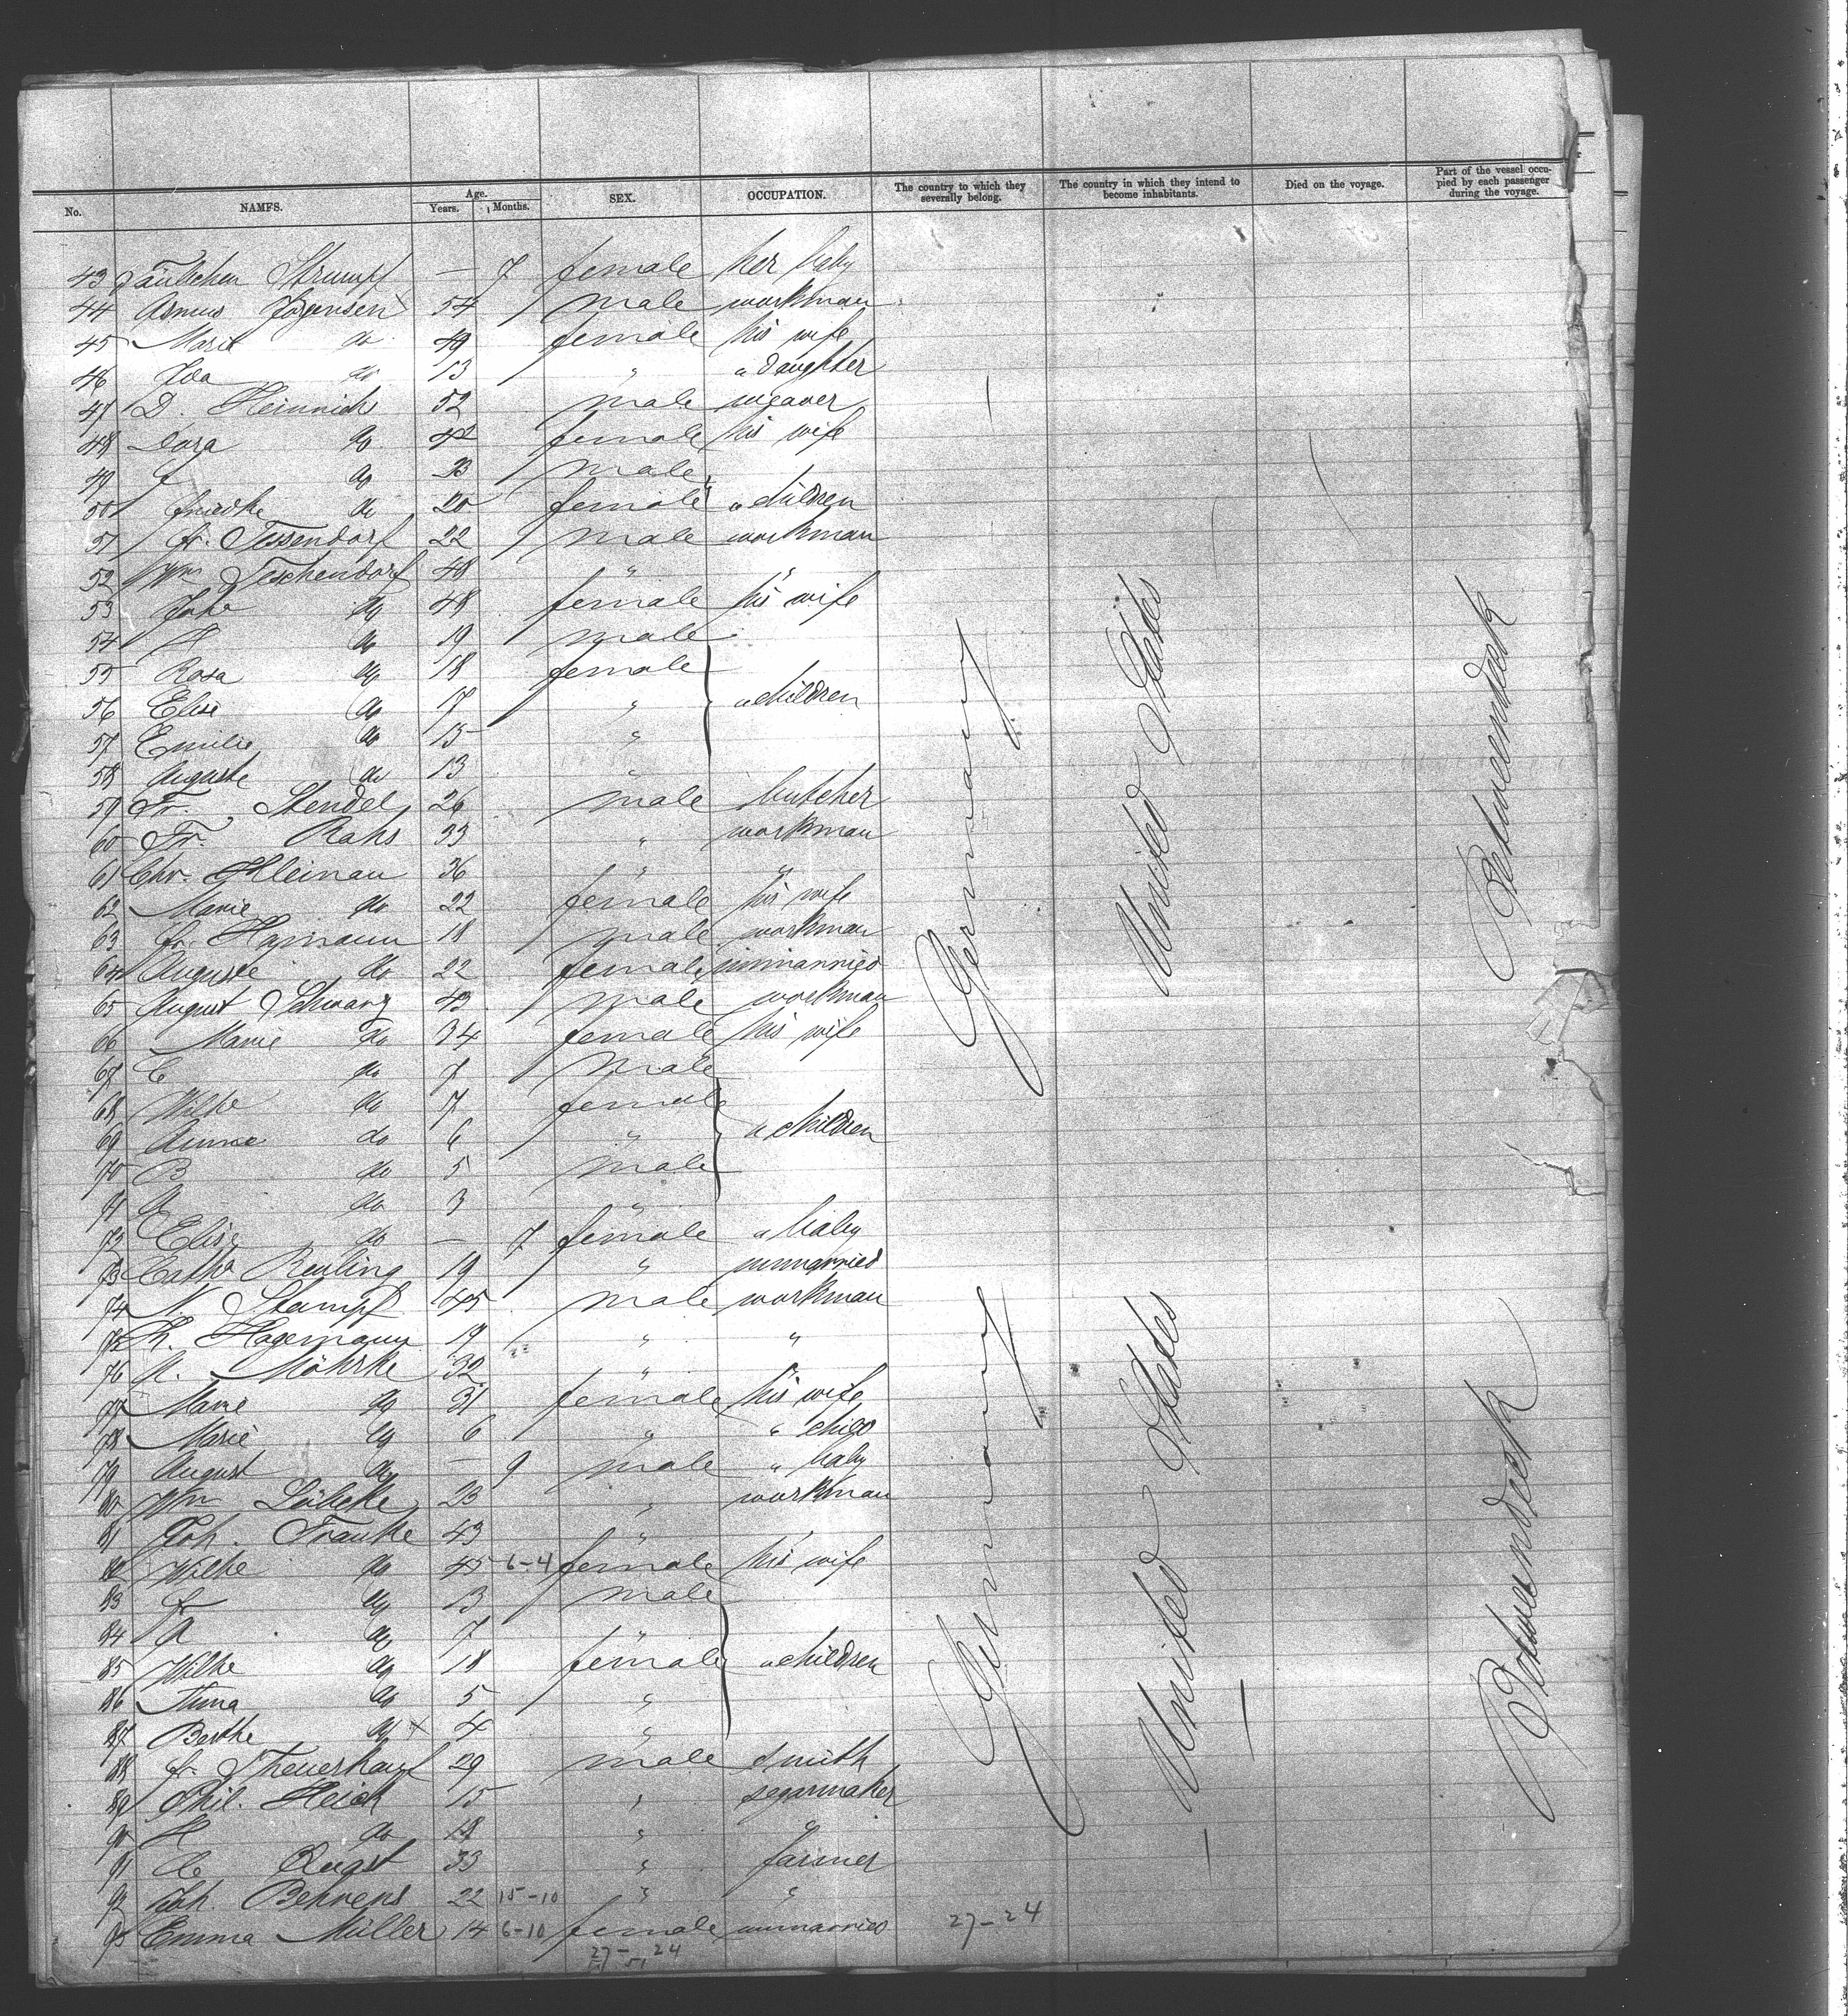 No. NAMES. Age. Years. Months. SEX. OCCUPATION. The country to which they severally belong. The country in which they intend to become inhabitants. Died on the voyage. Part of the vessel occupied by each passenger during the voyage.
43 Strumpf — 7 female her baby
44 Asmus Jörgensen 54 male workman
45 Marie do 49 female his wife
46 Ida do 13 " " daughter
47 D. Heinrich 52 male weaver
48 Dora do 42 female his wife
49 do 23 male
50 Friedke do 20 female " children
51 Fr. Tessendorf 22 male workman
52 Wm Teschendorf 48 " "
53 Joha do 48 female his wife
54 H do 19 male
55 Rosa do 18 female
56 Elise do 17 " " children
57 Emilie do 15 "
58 Auguste do 13 "
59 Fr. Stendel 26 male butcher
60 Fr. Rahs 33 " workman
61 Chr. Kleinau 36 " "
62 Marie do 22 female his wife
63 Fr. Hymann 18 male workman
64 Auguste do 22 female unmarried
65 August Schwarz 43 male workman
66 Marie do 34 female his wife
67 C do 7 male
68 Wilhe do 7 female
69 Anna do 6 " " children
70 B do 5 male
71 A do 3 "
72 Elise do — 7 female " baby
73 Cathe Reuling 19 " unmarried
74 N. Stumpf 45 male workman
75 H. Hagemann 19 " "
76 A. Möhrke 32 "
77 Marie do 31 female his wife
78 Marie do 6 " " child
79 August do — 9 male " baby
80 Wm Lübcke 23 " workman
81 Joh. Franke 43 "
82 Wilhe do 45 6-4 female his wife
83 Fr do 13 male
84 A do 7 "
85 Wilhe do 18 female " children
86 Anna do 5 "
87 Berthe do x 4 "
88 Fr. Theuerkauf 29 male smith
89 Phil. Heick 15 " segarmaker
90 H do 18 " "
91 C. August 33 " farmer
92 Joh. Behrens 22 15-10 " "
93 Emma Müller 14 6-10 female unmarried 27-24
27- 24
Germany United States Betweendeck
Germany United States Betweendeck